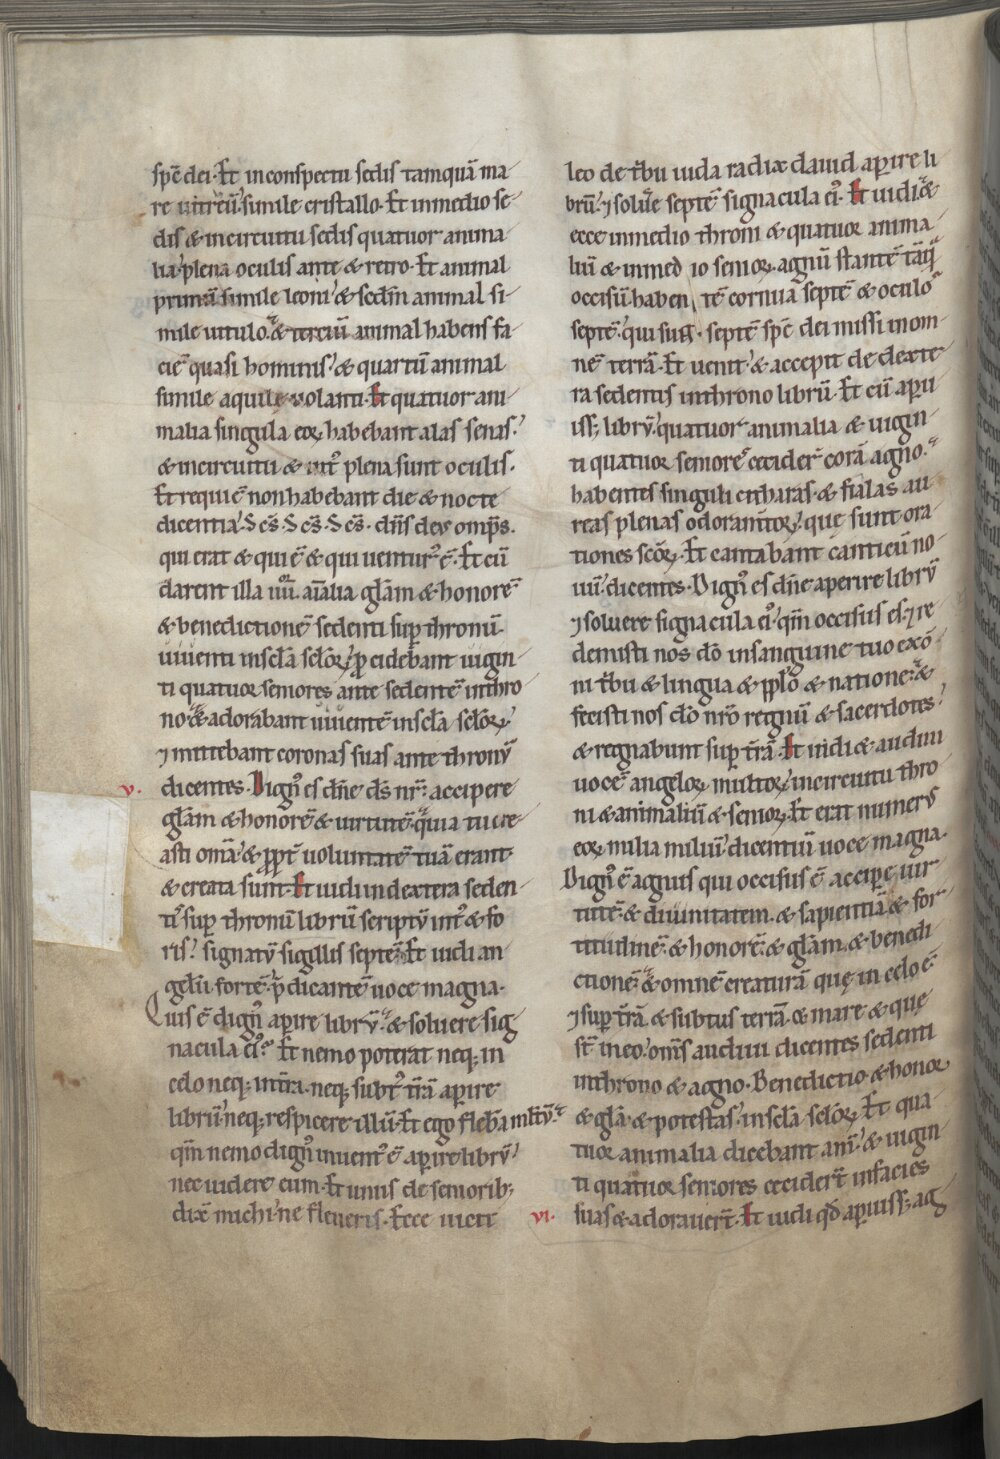 spē dei. Et in conspectu sedis tamquā ma
re uitreū. simile cristallo. Et in medio se
dis & in circuitu sedis quatuor anima
lia plena oculis ante & retro. Et animal
primū simile leoni & scdm̄ animal si
mile uitulo. & terciū animal habens fa
ciē quasi hominis. & quartū animal
simile aquile uolanti. Et quatuor ani
malia singula eoꝝ habebant alas senas.
& in circuitu & int᷒ plena sunt oculis.
Et requiē non habebant die & nocte
dicentia. Scs̄. Scs̄. Scs̄. dn̄s deus omp̄s.
qui erat & qui ē & qui uentur᷒ ē. Et cū
darent illa iiii. aīalia glām & honorē
& benedictionē sedenti suꝑ thronū.
uiuenti in scl̄a scl̄oꝝ ꝓcidebant uigin
ti quatuor seniores ante sedentē in thro
no. & adorabant uiuentē in scl̄a scl̄oꝝ
⁊ mittebant coronas suas ante thronū
v. dicentes. Dign᷒ es dn̄e ds̄ nr̄. accipere
glām & honorē & uirtutē. quia tu cre
asti omā. & ꝓpt̄ uoluntatē tuā erant
& creata sunt. Et uidi in dextera seden
ti᷒ suꝑ thronū librū scriptū int᷒ & fo
ris. signatū sigillis septē. Et uidi an
gelū fortē. p̄dicantē uoce magna.
Quis ē dign᷒ aꝑire librū. & soluere sig
nacula ei᷒. Et nemo poterat neq; in
celo neq; in tr̄a. neq; subt᷒ tr̄ā aꝑire
librū neq; respicere illū. Et ego flebā mltū.
qm̄ nemo dign᷒ inuent᷒ ē aꝑire librū
nec uidere eum. Et unus de seniorib;
dix̄ michi ne fleueris. Ecce uicit
leo de tribu iuda radix dauid aꝑire li
brū. ⁊ soluere septē signacula ei᷒. Et uidi. &
ecce in medio throni & quatuor anima
liū & in medio senioꝝ agnū stantē tāq̄
occisū habentē cornua septē & oculos
septē. qui sunt septē spē dei missi in om
nē terrā. Et uenit. & accepit de dexte
ra sedentis in throno librū. Et cū aꝑu
iss; librū. quatuor animalia & uigin
ti quatuor seniores cecider̄ corā agno.
habentes singuli citharas. & fialas au
reas plenas odoramtoꝝ. quę sunt ora
tiones scōꝝ. Et cantabant canticū no
uū. dicentes. Dign᷒ es dn̄e aperire librū
⁊ soluere signacula ei᷒. qm̄ occisus es. ⁊ re
demisti nos dō in sanguine tuo ex ō
ni tribu & lingua & ppl̄o & natione. &
fecisti nos dō nr̄o regnū & sacerdotes.
& regnabunt suꝑ tr̄ā. Et uidi & audiui
uocē angeloꝝ multoꝝ in circuitu thro
ni & animaliū & senioꝝ. Et erat numerus
eoꝝ milia miliū. dicentiū uoce magna.
Dign᷒ ē agnus qui occisus ē. accipe uir
tutē. & diuinitatem. & sapientiā. & for
titudinē. & honorē. & glām. & benedi
ctionē. & omnē creaturā quę in celo ē
⁊ suꝑ tr̄ā. & subtus terrā. & mare & que
st̄ in eo. omīs audiui dicentes sedenti
in throno & agno. Benedictio & honor
& glā. & potestas. in scl̄a scl̄oꝝ. Et qua
tuor animalia dicebant am̄. & uigin
ti quatuor seniores cecider̄t in facies
vi. suas & adorauer̄t. Et uidi qd̄ aꝑuiss; ag